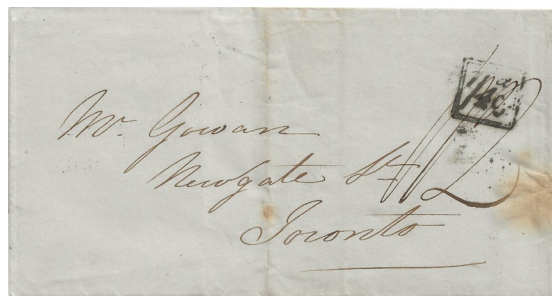 Mr. Gowan
Newgate St
Toronto